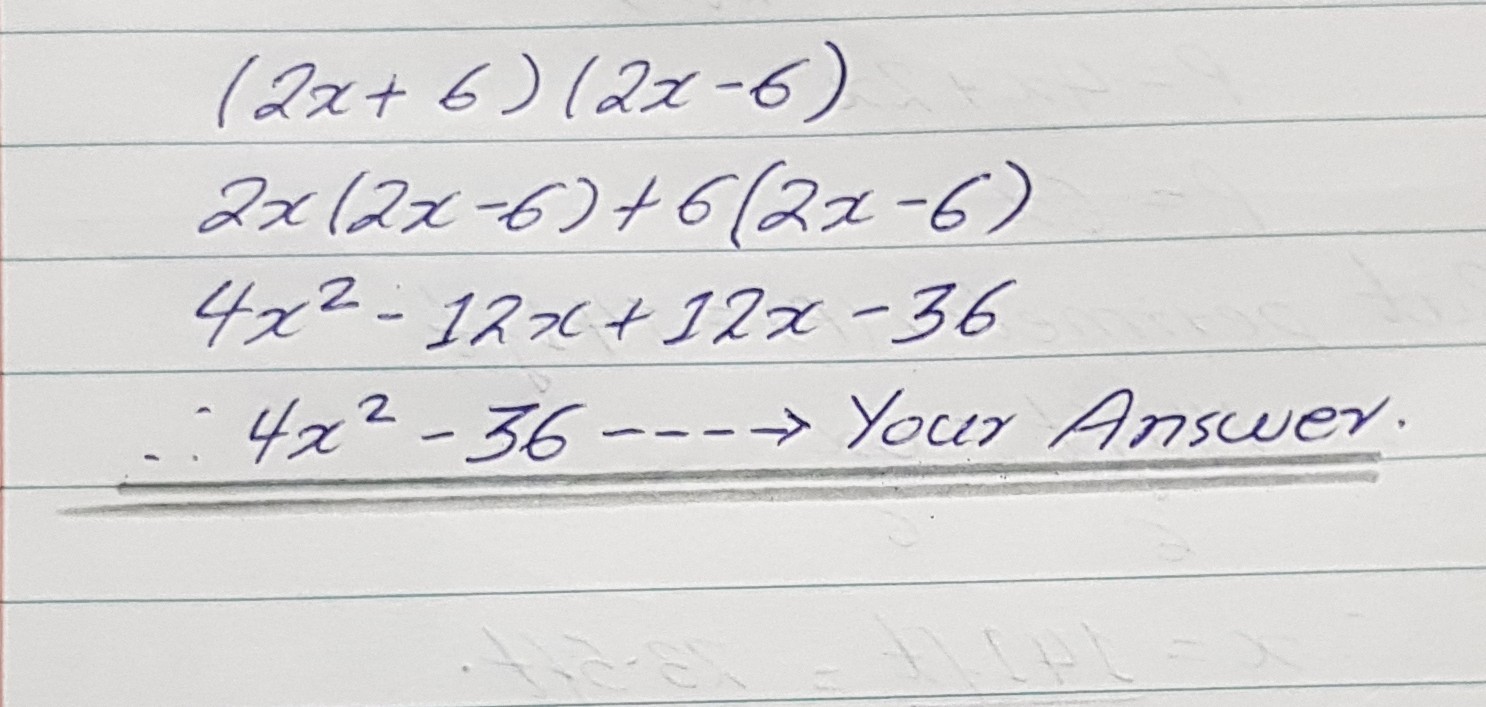 (2x+6)(2x-6)
2x(2x-6)+6(2x-6)
4x²-12x+12x-36
∴ 4x²-36----→ Your Answer.